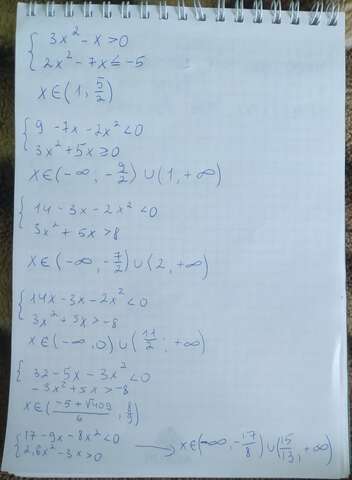 { 3x² - x > 0
2x² - 7x ≤ -5
x∈(1, 5/2)
{ 9 - 7x - 2x² < 0
3x² + 5x ≥ 0
x∈(-∞, -9/2) ∪ (1, +∞)
{ 14 - 3x - 2x² < 0
3x² + 5x > 8
x∈(-∞, -7/2) ∪ (2, +∞)
{ 14x - 3x - 2x² < 0
3x² + 5x > -8
x∈(-∞, 0) ∪ (11/2; +∞)
{ 32 - 5x - 3x² < 0
-3x² + 5x > -8
x∈((-5+√409)/6, 8/9)
{ 17 - 9x - 8x² < 0 → x∈(-∞, -17/8) ∪ (15/13, +∞)
2,6x² - 3x > 0